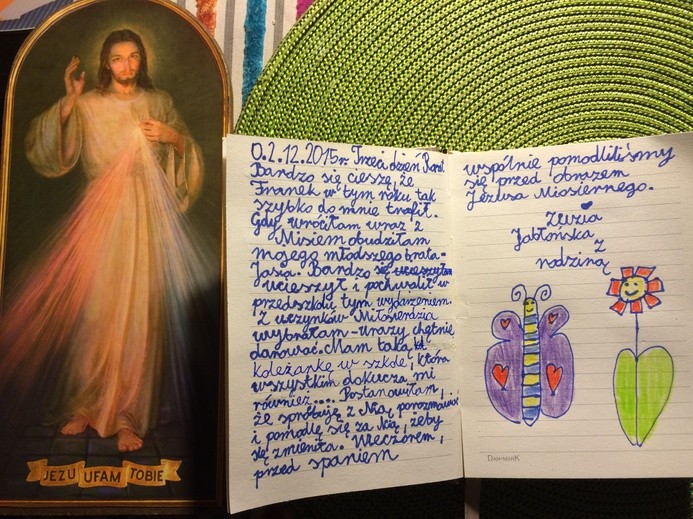 JEZU UFAM TOBIE
0.2.12.2015r. Trzeci dzień Rorat
Bardzo się cieszę, że
Franek w tym roku tak
szybko do mnie trafił.
Gdy wróciłam wraz z
Misiem obudziłam
mojego młodszego brata-
Jasia. Bardzo się ucieszyłam
ucieszył i pochwalił w
przedszkolu tym wydarzeniem.
Z uczynków Miłosierdzia
wybrałam - urazy chętnie
darować. Mam taką
koleżankę w szkole, która
wszystkim dokucza mi
również.... Postanowiłam,
że spróbuję z Nią porozmawiać
i pomodlę się za Nią, żeby
się zmieniła. Wieczorem,
przed spaniem
wspólnie pomodliliśmy
się przed obrazem
Jezusa Miosiernego.
Zuzia
Jabłońska
z
rodziną
DAN-MARK